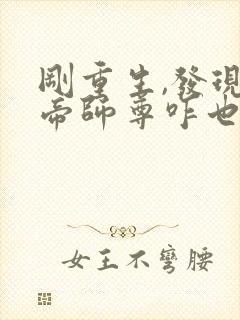 剛重生,發現
帝師尊咋也
女王不彎腰